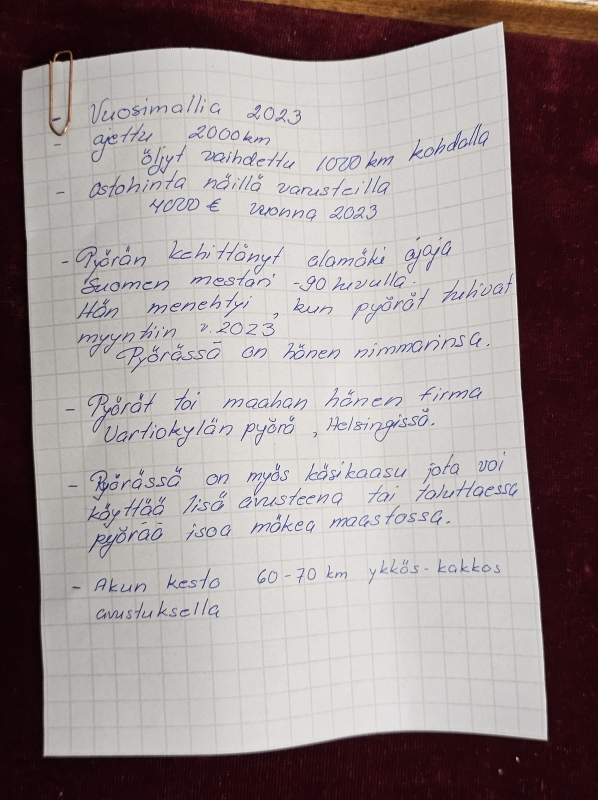 - Vuosimallia 2023
- ajettu 2000km
öljyt vaihdettu 1000 km kohdalla
- ostohinta näillä varusteilla
4000 € vuonna 2023
- Pyörän kehittänyt alamäki ajaja
Suomen mestari -90 luvulla.
Hän menehtyi, kun pyörät tulivat
myyntiin v. 2023
Pyörässä on hänen nimmarinsa.
- Pyörät toi maahan hänen firma
Vartiokylän pyörä, Helsingissä.
- Pyörässä on myös käsikaasu jota voi
käyttää lisä avusteena tai taluttaessa
pyörää isoa mäkea maastossa.
- Akun kesto 60-70 km ykkös-kakkos
avustuksella